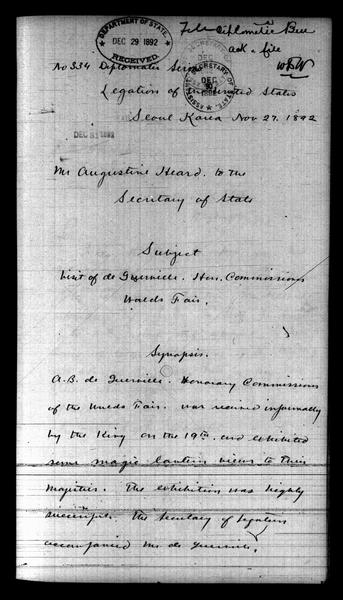 DEPARTMENT OF STATE,
DEC 29 1892
RECEIVED
File Diplomatic Bureau
ack. file
No 334 Diplomatic Series
ASSISTANT SECRETARY OF STATE,
DEC 30 1892
Legation of the United States
Seoul Korea Nov 27. 1892
DEC 31 1892
Mr Augustine Heard. to the
Secretary of State
Subject
Visit of de Guerville. Hon. Commissioner
Worlds Fair.
Synopsis.
A.B. de Guerville. Honorary Commissioner
of the Worlds Fair. was received informally
by the King on the 19th. and exhibited
some magic lantern views to their
Majesties. The exhibition was highly
successful. The Secretary of Legation
accompanied Mr de Guerville.